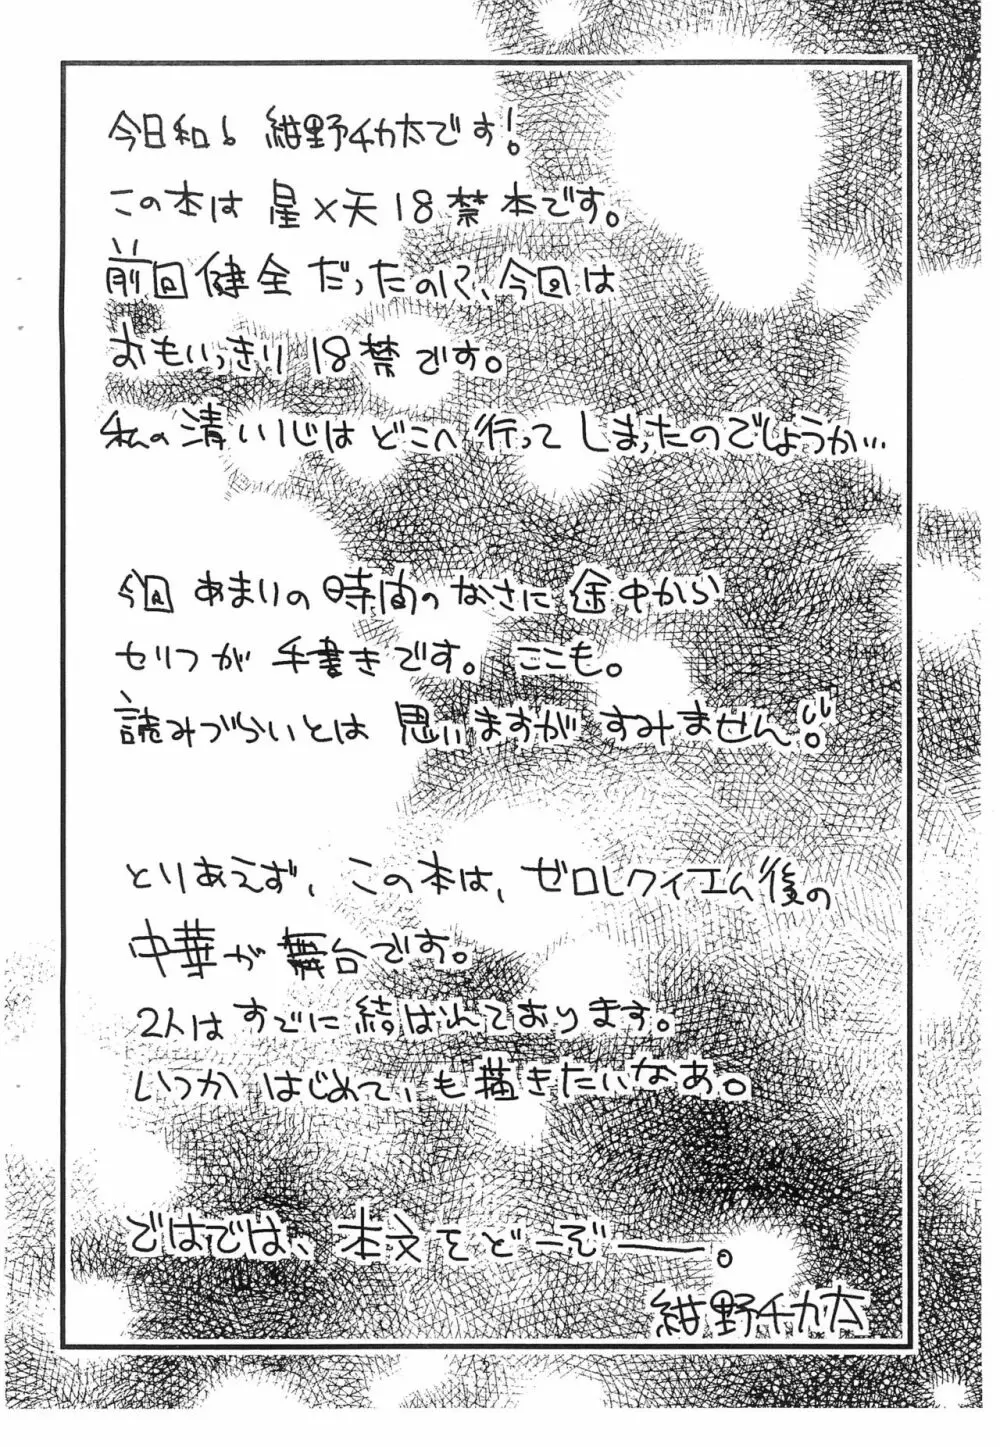 今日和! 紺野チカ太です!
この本は 星×天18禁本です。
前回健全だったのに、今回は
おもいっきり18禁です。
私の清い心はどこへ行ってしまったのでしょうか…
今回あまりの時間のなさに途中から
セリフが手書きです。ここも。
読みづらいとは思いますがすみません!!
とりあえず、この本は、ゼロレクイエム後の
中華が舞台です。
2人はすでに結ばれております。
いつかはじめて、も描きたいなあ。
ではでは、本文をどーぞー。
紺野チカ太